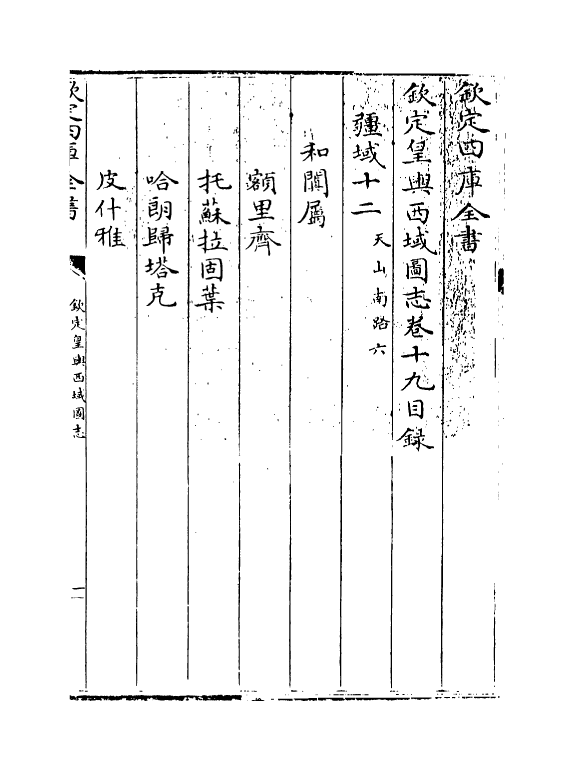 欽定四庫全書
欽定皇輿西域圖志卷十九目録
疆域十二 天山南路六
和闐屬
額里齊
托蘇拉固葉
哈朗歸塔克
皮什雅
欽定四庫全書
欽定皇輿西域圖志
一